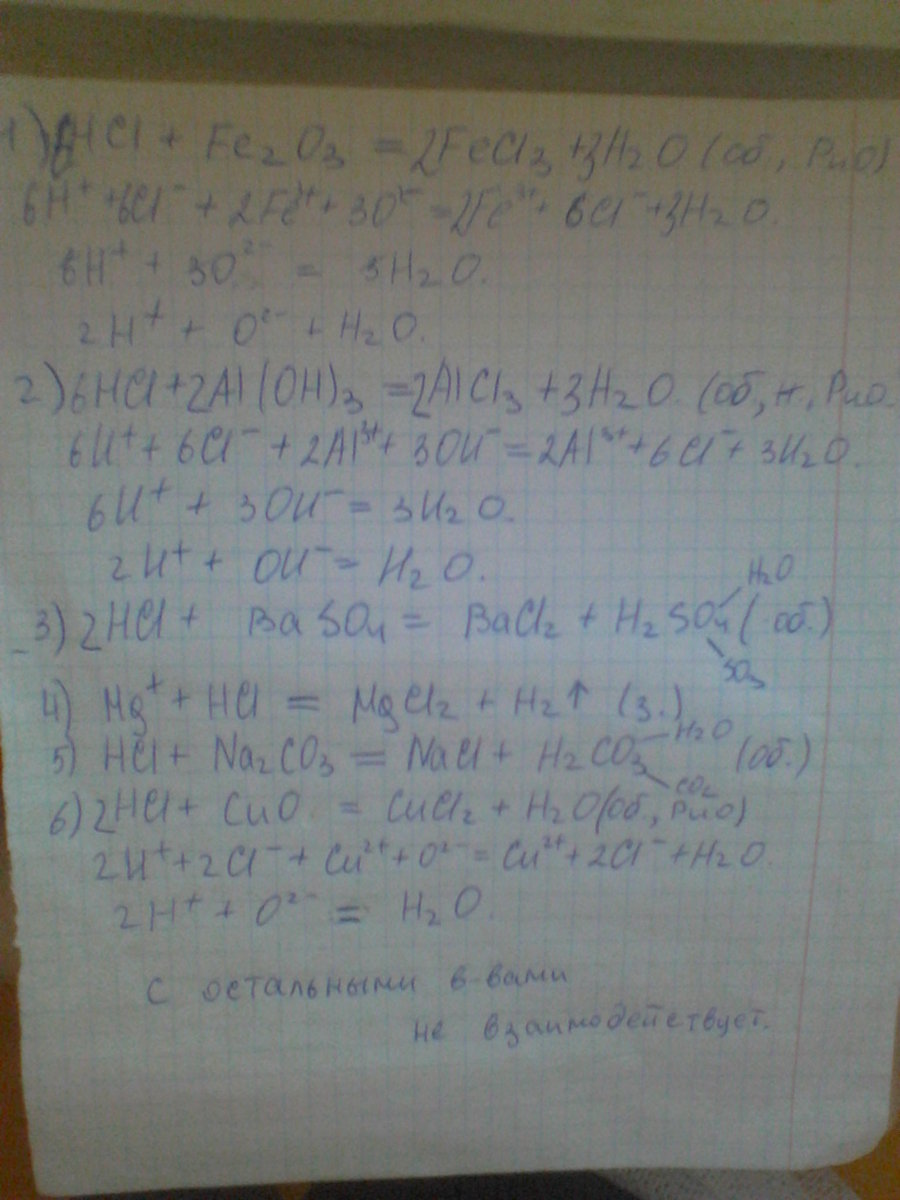 1) 6HCl + Fe₂O₃ = 2FeCl₃ + 3H₂O (об., РиО)
6H⁺ + 6Cl⁻ + 2Fe³⁺ + 3O²⁻ = 2Fe³⁺ + 6Cl⁻ + 3H₂O.
6H⁺ + 3O²⁻ = 3H₂O.
2H⁺ + O²⁻ + H₂O.
2) 6HCl + 2Al(OH)₃ = 2AlCl₃ + 3H₂O. (об, н., РиО.
6H⁺ + 6Cl⁻ + 2Al³⁺ + 3OH⁻ = 2Al³⁺ + 6Cl⁻ + 3H₂O.
6H⁺ + 3OH⁻ = 3H₂O.
2H⁺ + OH⁻ = H₂O.
H₂O
3) 2HCl + BaSO₄ = BaCl₂ + H₂SO₄ (об.)
SO₃
4) Mg⁺ + HCl = MgCl₂ + H₂↑ (з.)
H₂O
5) HCl + Na₂CO₃ = NaCl + H₂CO₃ (об.)
CO₂
6) 2HCl + CuO = CuCl₂ + H₂O (об., РиО)
2H⁺ + 2Cl⁻ + Cu²⁺ + O²⁻ = Cu²⁺ + 2Cl⁻ + H₂O.
2H⁺ + O²⁻ = H₂O.
с остальными в-вами
не взаимодействует.